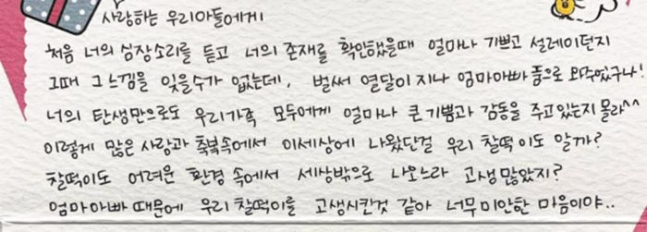 사랑하는 우리아들에게
처음 너의 심장소리를 듣고 너의 존재를 확인했을때 얼마나 기쁘고 설레이던지
그때 그느낌을 잊을수가 없는데, 벌써 열달이 지나 엄마아빠 품으로 와주었구나!
너의 탄생만으로도 우리가족 모두에게 얼마나 큰 기쁨과 감동을 주고있는지 몰라^^
이렇게 많은 사랑과 축복속에서 이세상에 나왔단걸 우리 찰떡이도 알까?
찰떡이도 어려운 환경 속에서 세상밖으로 나오느라 고생많았지?
엄마아빠 때문에 우리 찰떡이를 고생시킨것 같아 너무미안한 마음이야..